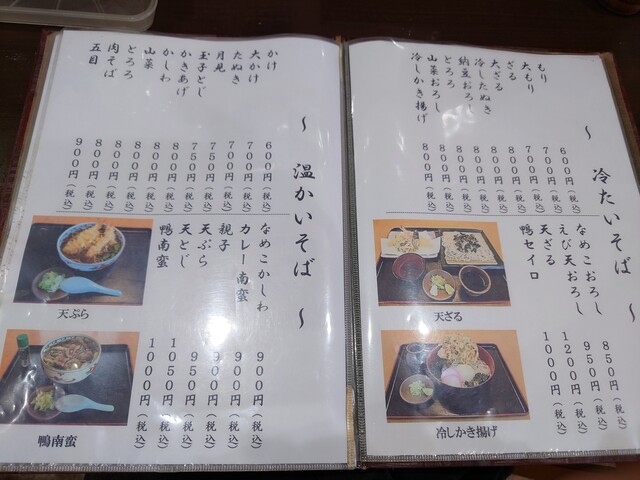 ～ 冷たいそば ～
もり
大もり
ざる
大ざる
冷したぬき
納豆おろし
とろろ
山菜おろし
冷しかき揚げ
６００円（税込）
７００円（税込）
７００円（税込）
８００円（税込）
８００円（税込）
８００円（税込）
８００円（税込）
８００円（税込）
なめこおろし
えび天おろし
天ざる
鴨セイロ
８５０円（税込）
９５０円（税込）
１２００円（税込）
１０００円（税込）
天ざる
冷しかき揚げ
～ 温かいそば ～
かけ
大かけ
たぬき
月見
玉子とじ
かきあげ
かしわ
山菜
とろろ
肉そば
五目
６００円（税込）
７００円（税込）
７００円（税込）
７５０円（税込）
７５０円（税込）
８００円（税込）
８００円（税込）
８００円（税込）
８００円（税込）
９００円（税込）
なめこかしわ
カレー南蛮
親子
天ぷら
天とじ
鴨南蛮
９００円（税込）
９００円（税込）
９００円（税込）
９５０円（税込）
１０５０円（税込）
１０００円（税込）
天ぷら
鴨南蛮